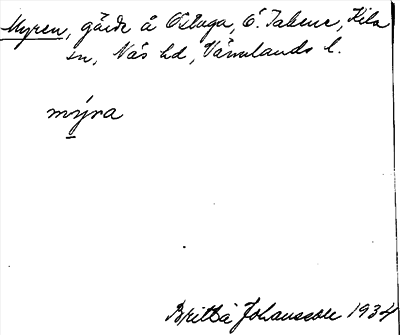 Myren, gärde å Östaga, Ö. Takene, Kila
sn, Näs hd, Värmlands l.
mýra
Britta Johansson 1934